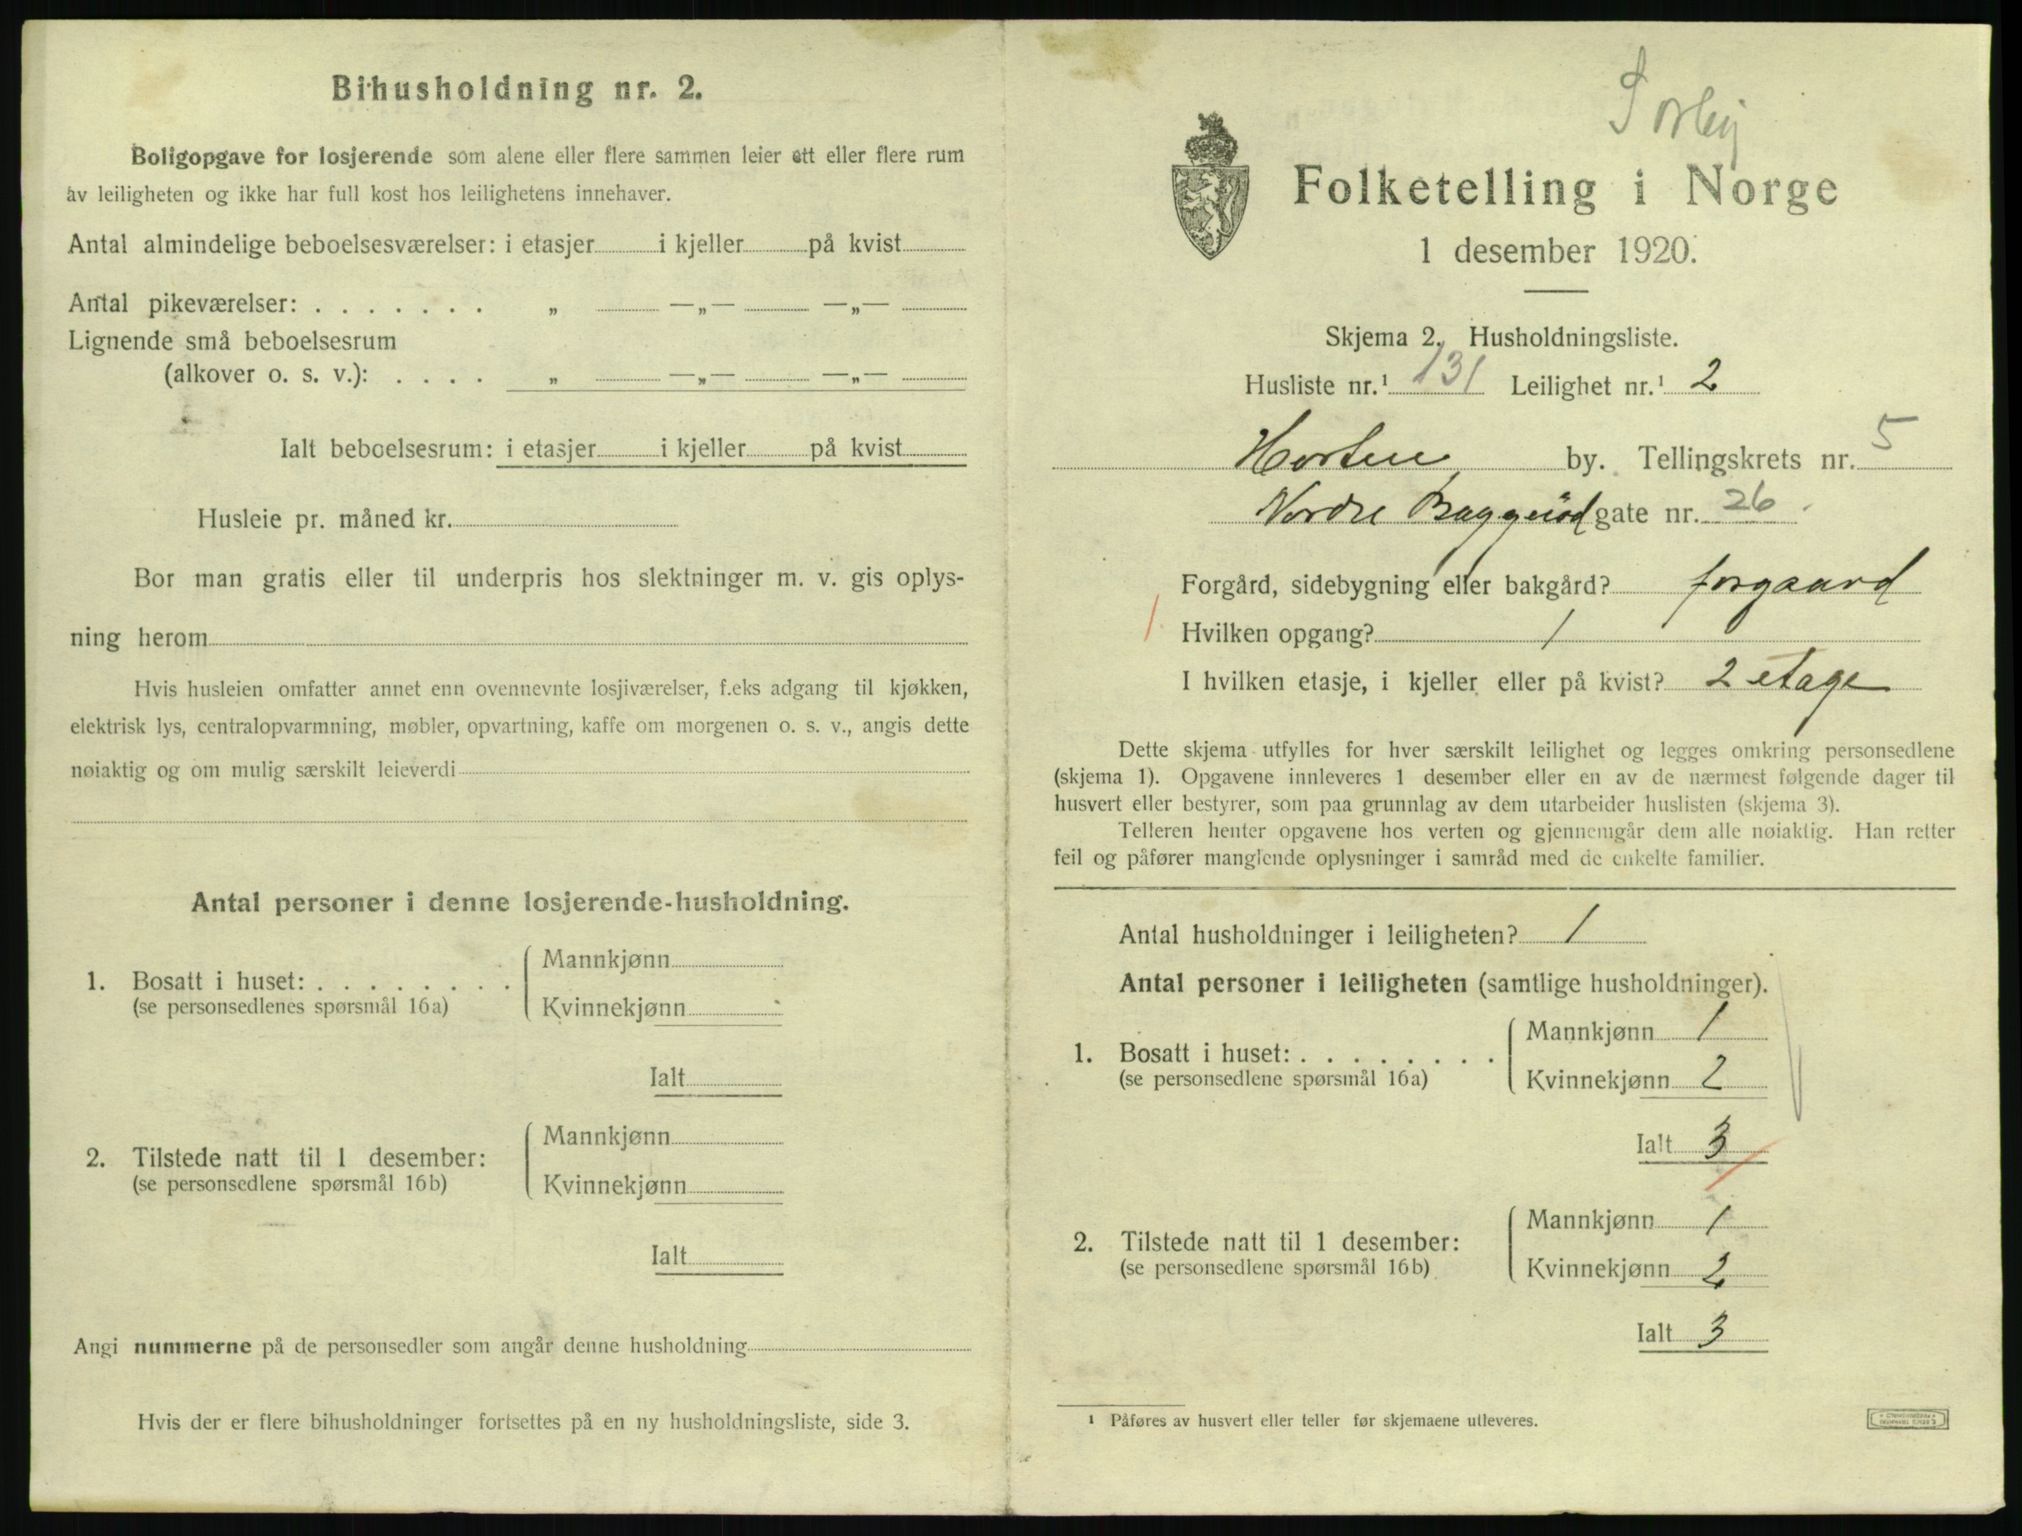 Bihusholdning nr. 2.
Boligopgave for losjerende som alene eller flere sammen leier ett eller flere rum
av leiligheten og ikke har full kost hos leilighetens innehaver.
Antal almindelige beboelsesværelser: i etasjer i kjeller på kvist
Antal pikeværelser: . . . . . . . „ —„— —„—
Lignende små beboelsesrum
(alkover o. s. v.): . . . . „ —„— —„—
Ialt beboelsesrum: i etasjer i kjeller på kvist
Husleie pr. måned kr.
Bor man gratis eller til underpris hos slektninger m. v. gis oplys-
ning herom
Hvis husleien omfatter annet enn ovennevnte losjiværelser, f.eks adgang til kjøkken,
elektrisk lys, centralopvarmning, møbler, opvartning, kaffe om morgenen o. s. v., angis dette
nøiaktig og om mulig særskilt leieverdi
Antal personer i denne losjerende-husholdning.
1. Bosatt i huset: . . . . . . . .
(se personsedlenes spørsmål 16a)
Mannkjønn
Kvinnekjønn
Ialt
2. Tilstede natt til 1 desember:
(se personsedlene spørsmål 16b)
Mannkjønn
Kvinnekjønn
Ialt
Angi nummerne på de personsedler som angår denne husholdning
Hvis der er flere bihusholdninger fortsettes på en ny husholdningsliste, side 3.
Folketelling i Norge
1 desember 1920.
Skjema 2. Husholdningsliste.
Husliste nr.¹ 131 Leilighet nr.¹ 2
Horten by. Tellingskrets nr. 5
Nordre gate nr. 26.
Forgård, sidebygning eller bakgård? forgaard
Hvilken opgang? 1
I hvilken etasje, i kjeller eller på kvist? 2 etage
Dette skjema utfylles for hver særskilt leilighet og legges omkring personsedlene
(skjema 1). Opgavene innleveres 1 desember eller en av de nærmest følgende dager til
husvert eller bestyrer, som paa grunnlag av dem utarbeider huslisten (skjema 3).
Telleren henter opgavene hos verten og gjennemgår dem alle nøiaktig. Han retter
feil og påfører manglende oplysninger i samråd med de enkelte familier.
Antal husholdninger i leiligheten? 1
Antal personer i leiligheten (samtlige husholdninger).
1. Bosatt i huset: . . . . . . . .
(se personsedlene spørsmål 16a)
Mannkjønn 1
Kvinnekjønn 2
Ialt 3
2. Tilstede natt til 1 desember:
(se personsedlene spørsmål 16b)
Mannkjønn 1
Kvinnekjønn 2
Ialt 3
¹ Påføres av husvert eller teller før skjemaene utleveres.